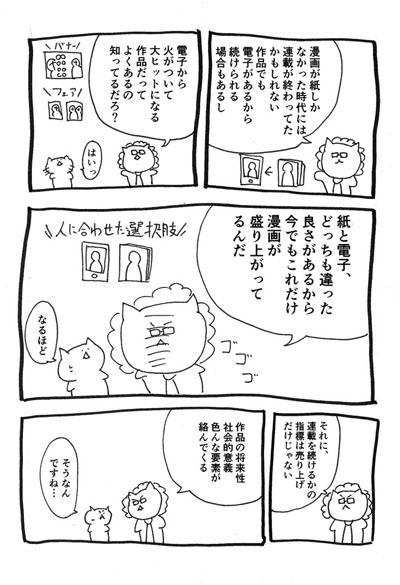 漫画が紙しか
なかった時代には
連載が終わってた
かもしれない
作品でも
電子があるから
続けられる
場合もあるし
電子から
火がついて
大ヒットになる
作品だって
よくあるの
知ってるだろ?
\\バナー/
\\フェア/
はいっ
紙と電子、
どっちも違った
良さがあるから
今でもこれだけ
漫画が
盛り上がって
るんだ
\\人に合わせた選択肢//
ゴゴゴ
なるほど
それに、
連載を続けるかの
指標は売り上げ
だけじゃない
作品の将来性
社会的意義
色んな要素が
絡んでくる
そうなん
ですね…